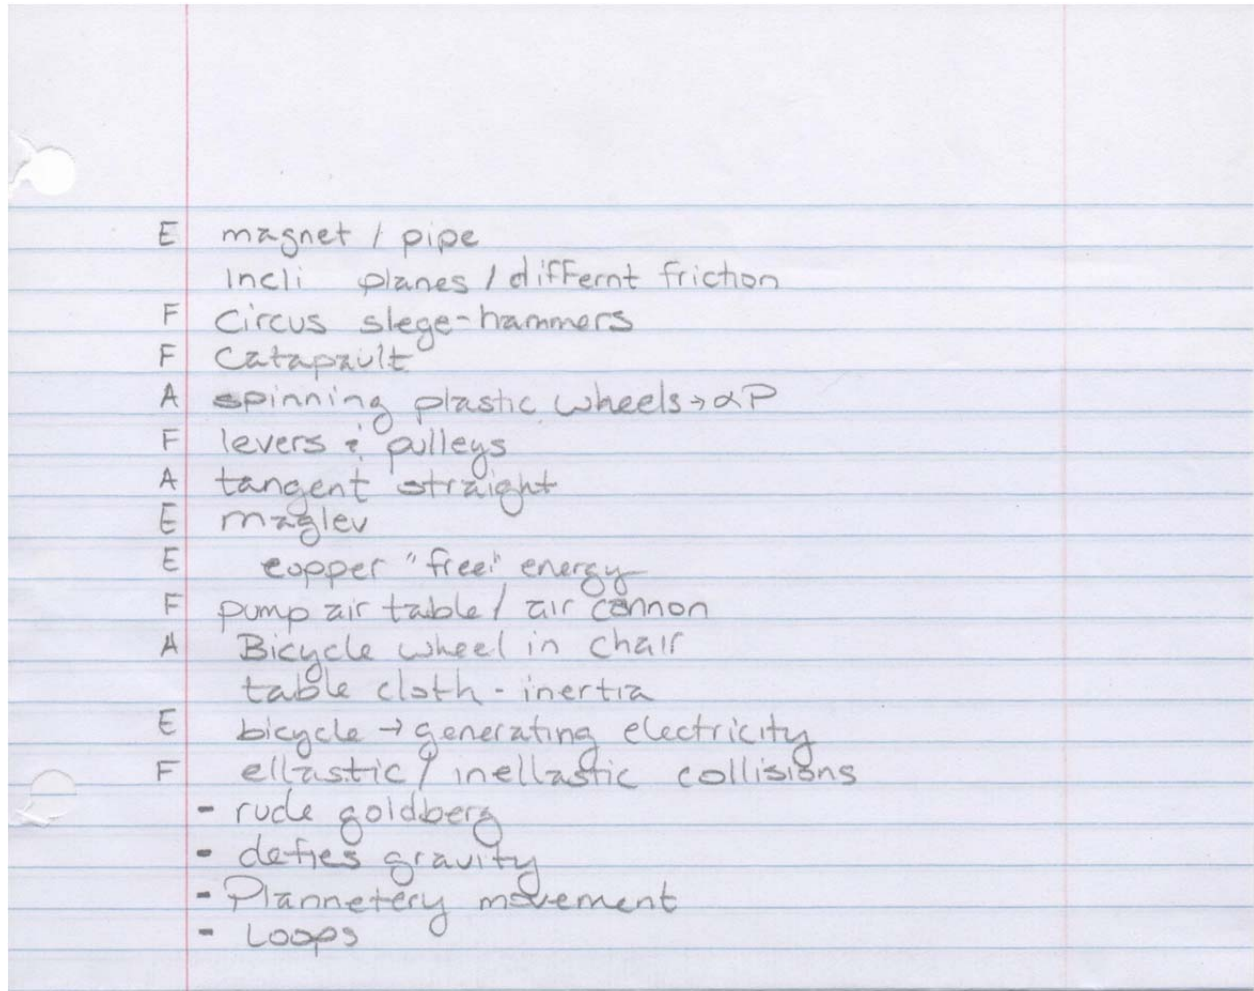 E magnet / pipe
Incli planes / differnt friction
F Circus slege-hammers
F Catapault
A spinning plastic wheels → αP
F levers & pulleys
A tangent straight
E maglev
E copper "free" energy
F pump air table / air cannon
A Bicycle wheel in chair
table cloth - inertia
E bicycle → generating electricity
F ellastic / inellastic collisions
- rude goldberg
- defies gravity
- Plannetery movement
- Loops